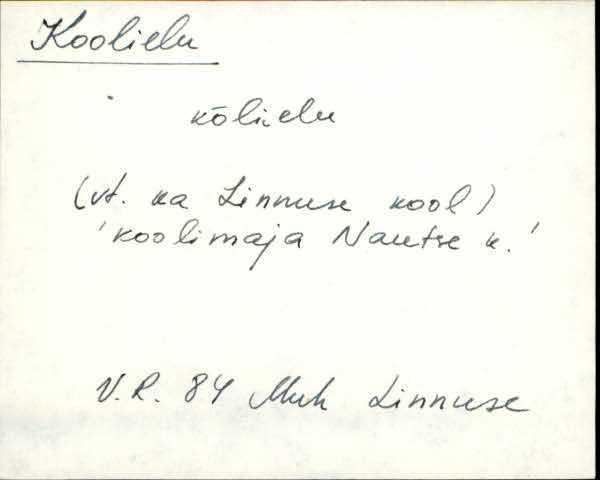 Koolielu
kōlielu
(vt. ka Linnuse kool)
'koolimaja Nautse k.'
V.R. 84 Muh Linnuse